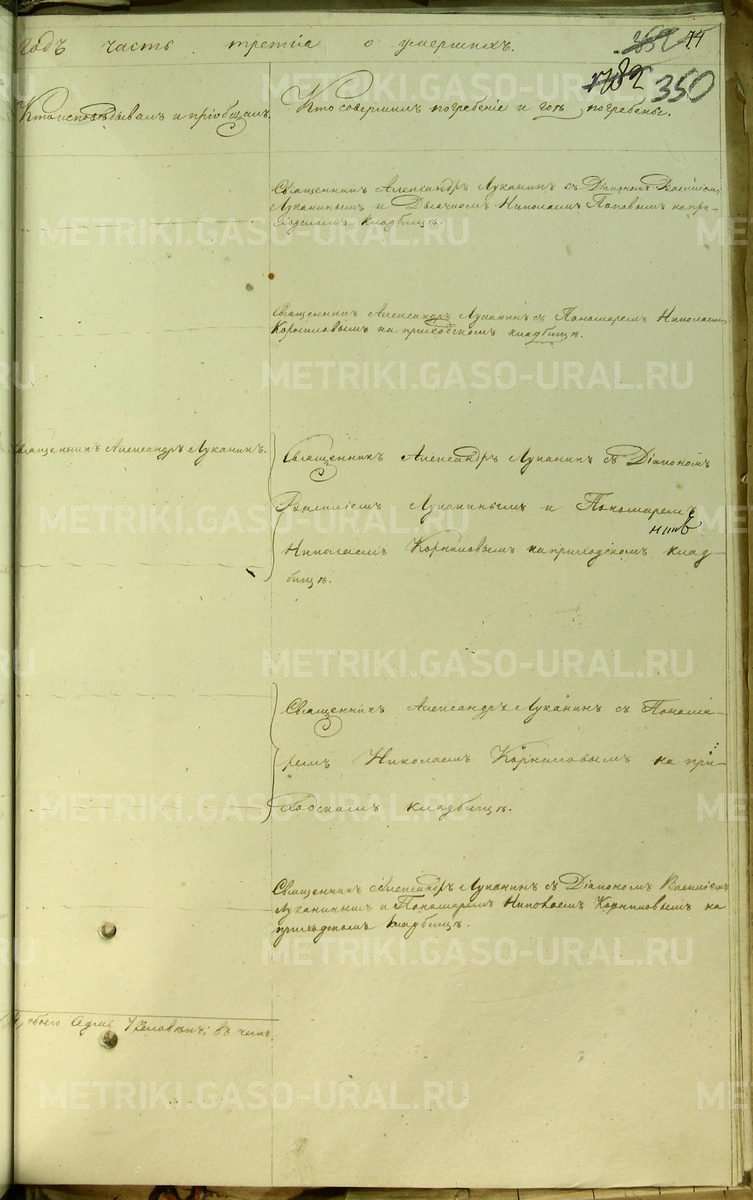 годъ часть третія о умершихъ. 44
350
Кто исповѣдывалъ и пріобщалъ. Кто совершилъ погребеніе и гдѣ погребены.
Священникъ Александръ Луканинъ съ Діакономъ Василіемъ
Луканинымъ и Дьячкомъ Николаемъ Поповымъ на при-
ходскомъ кладбищѣ.
Священникъ Александръ Луканинъ съ Пономаремъ Николаемъ
Корниловымъ на приходскомъ кладбищѣ.
Священникъ Александръ Луканинъ.
Священникъ Александръ Луканинъ съ Діакономъ
Василіемъ Луканинымъ и Пономаремъ
Николаемъ Корниловымъ на приходскомъ клад-
бищѣ.
Священникъ Александръ Луканинъ съ Понома-
ремъ Николаемъ Корниловымъ на при-
ходскомъ кладбищѣ.
Священникъ Александръ Луканинъ съ Діакономъ Василіемъ
Луканинымъ и Пономаремъ Николаемъ Корниловымъ на
приходскомъ кладбищѣ.
въ чемъ
METRIKI.GASO-URAL.RU